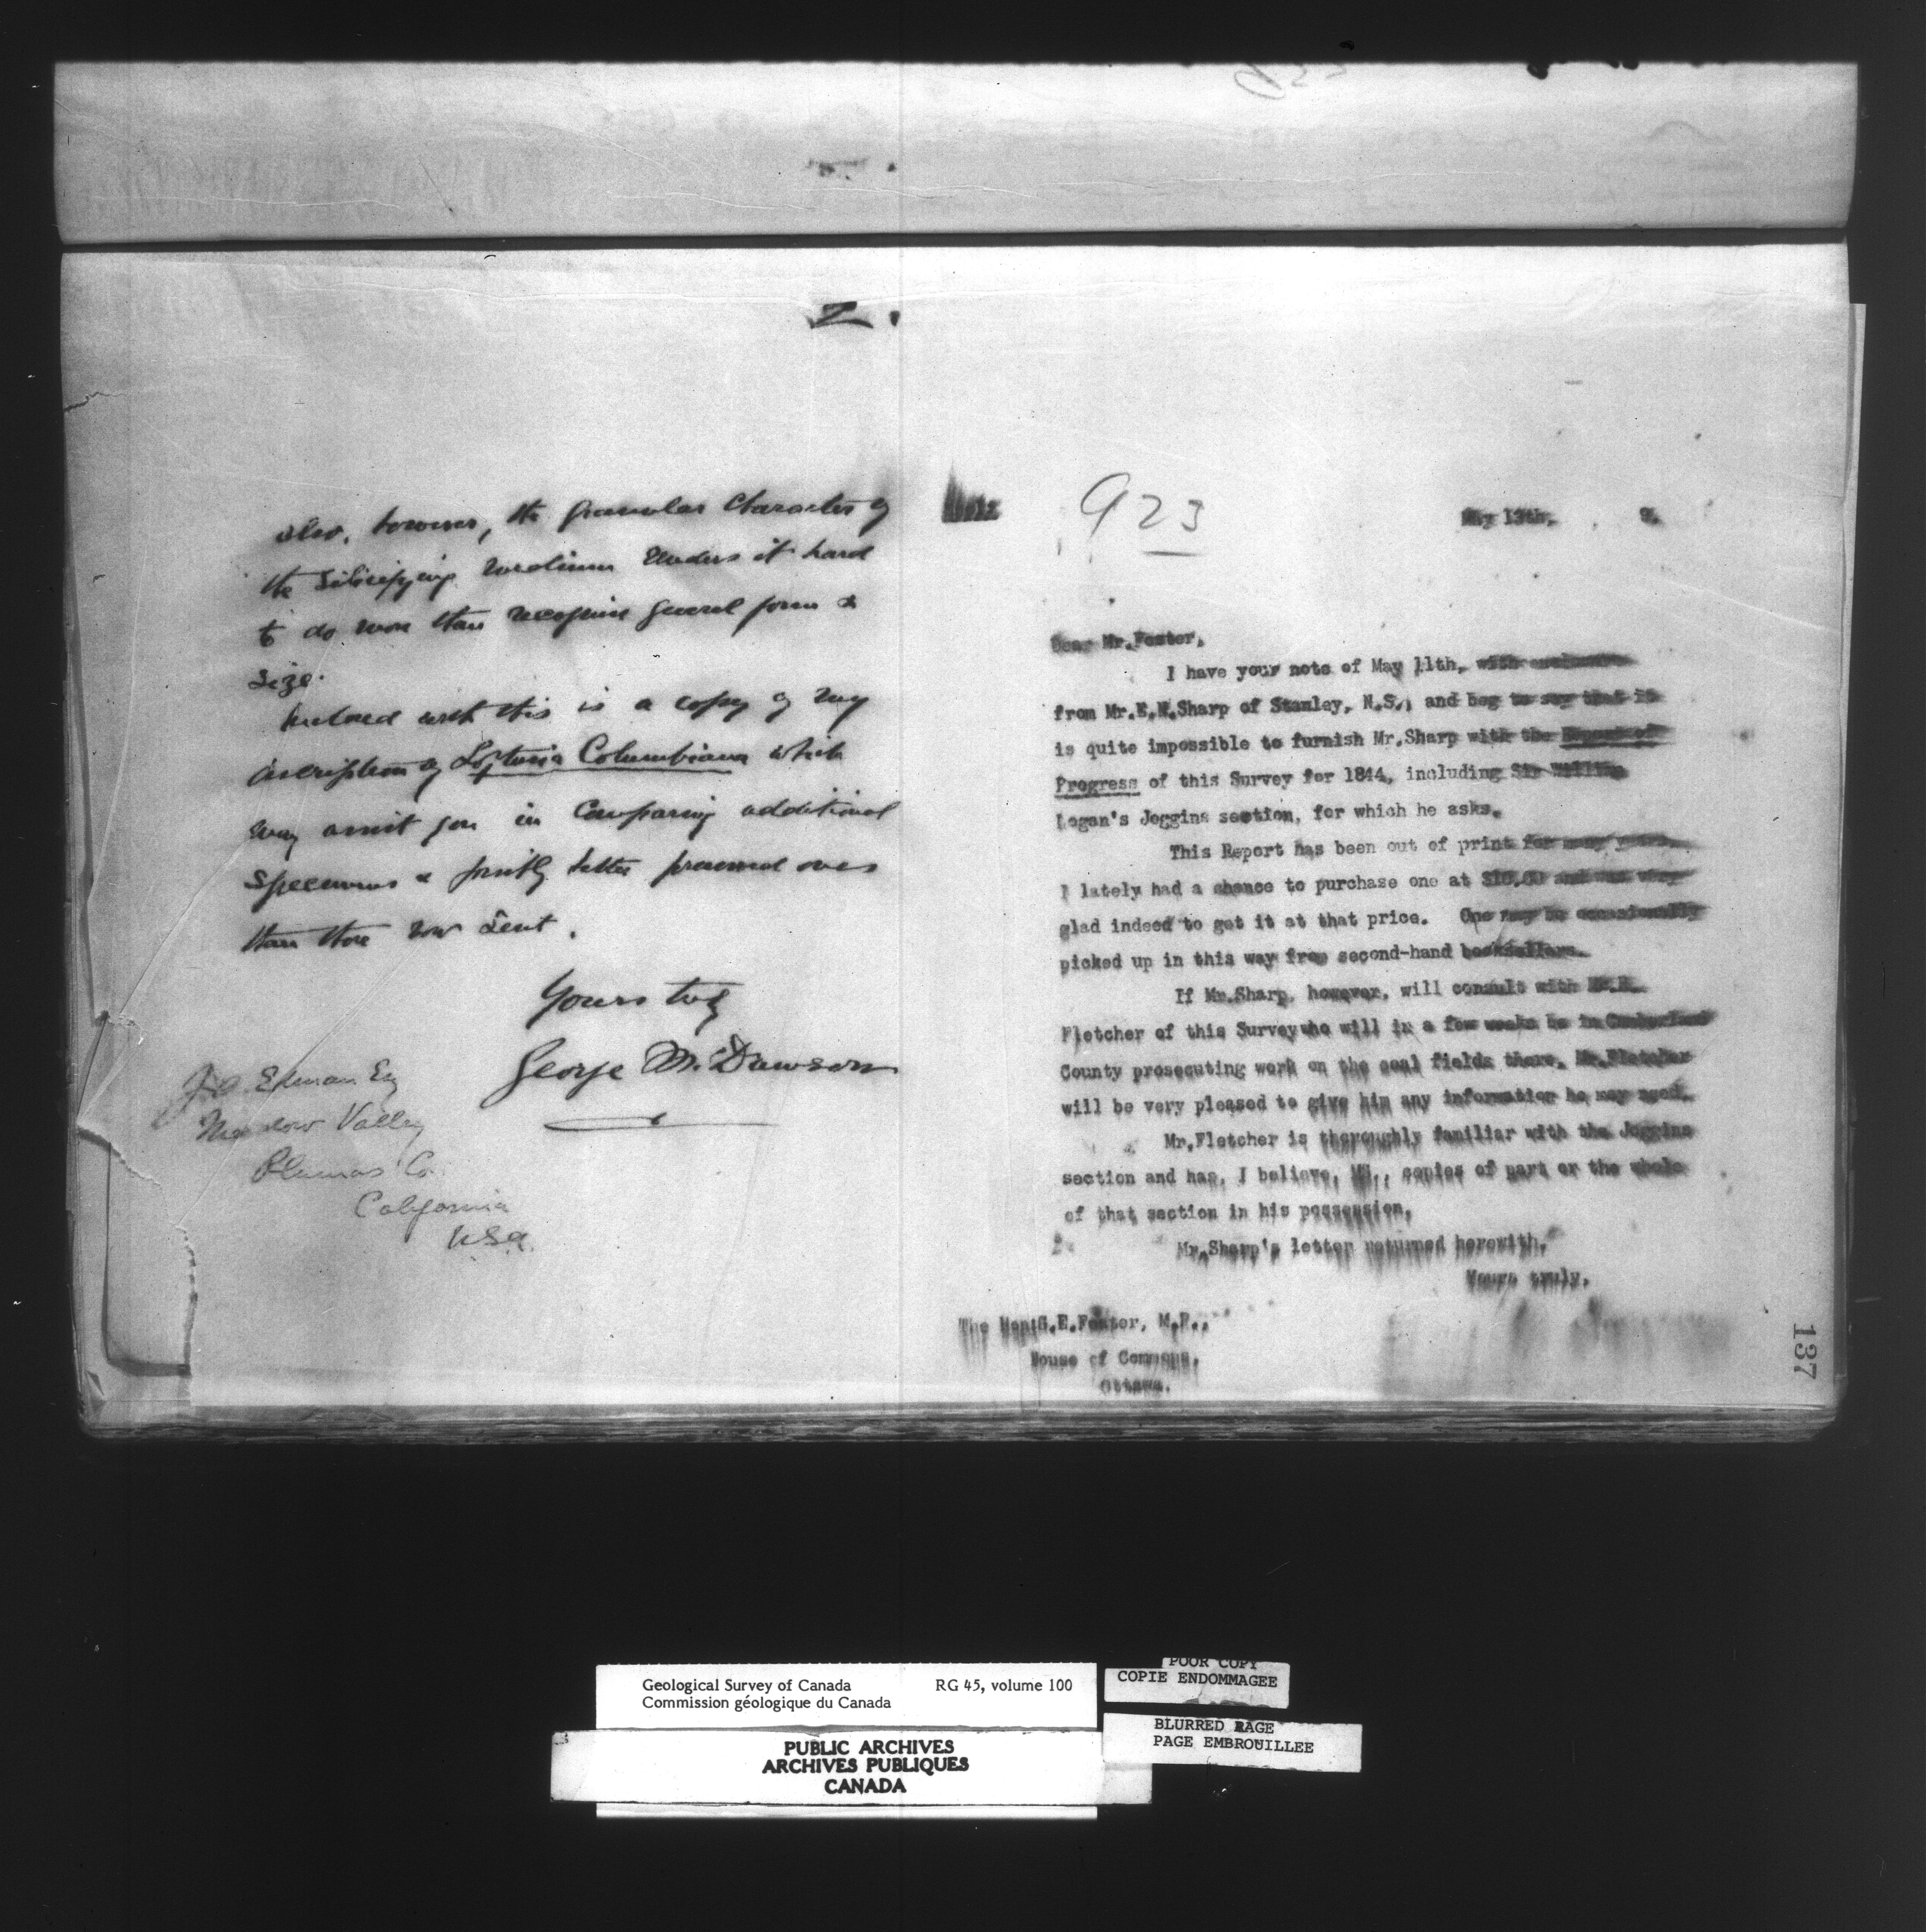 2.
also, however, the granular character of
the silicifying medium renders it hard
to do more than recognize general form &
size.
Inclosed with this is a copy of my
description of Loftusia Columbiana which
may assist you in comparing additional
specimens & possibly better preserved ones
than those now sent.
Yours truly
George M. Dawson
J.A. Edman Esq
Meadow Valley
Plumas Co.
California
USA.
923
May 13th, 9.
Dear Mr.Foster,
I have your note of May 11th, with enclosure
from Mr.E.W.Sharp of Stanley, N.S., and beg to say that it
is quite impossible to furnish Mr.Sharp with the Report of
Progress of this Survey for 1844, including Sir William
Logan's Joggins section, for which he asks.
This Report has been out of print for many years.
I lately had a chance to purchase one at $10.00 and was very
glad indeed to get it at that price. One may be occasionally
picked up in this way from second-hand booksellers.
If Mr.Sharp, however, will consult with Mr.H.
Fletcher of this Survey who will in a few weeks be in Cumberland
County prosecuting work on the coal fields there, Mr.Fletcher
will be very pleased to give him any information he may need.
Mr.Fletcher is thoroughly familiar with the Joggins
section and has, I believe, MS., copies of part or the whole
of that section in his possession.
Mr.Sharp's letter returned herewith.
Yours truly,
The Hon.G.E.Foster, M.P.,
House of Commons,
Ottawa.
137
Geological Survey of Canada RG 45, volume 100
Commission géologique du Canada
PUBLIC ARCHIVES
ARCHIVES PUBLIQUES
CANADA
POOR COPY
COPIE ENDOMMAGEE
BLURRED PAGE
PAGE EMBROUILLEE